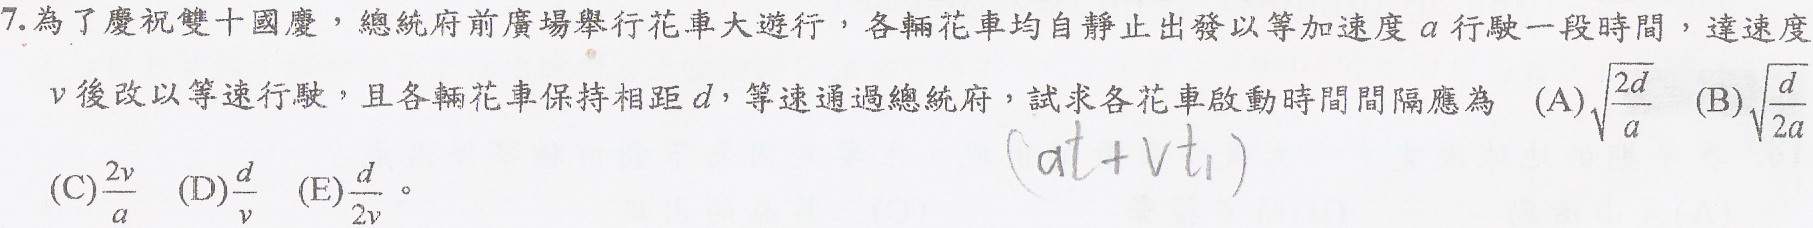 7. 為了慶祝雙十國慶，總統府前廣場舉行花車大遊行，各輛花車均自靜止出發以等加速度 a 行駛一段時間，達速度
v 後改以等速行駛，且各輛花車保持相距 d，等速通過總統府，試求各花車啟動時間間隔應為 (A)√(2d/a) (B)√(d/2a)
(at + vt₁)
(C) 2v/a (D) d/v (E) d/2v 。